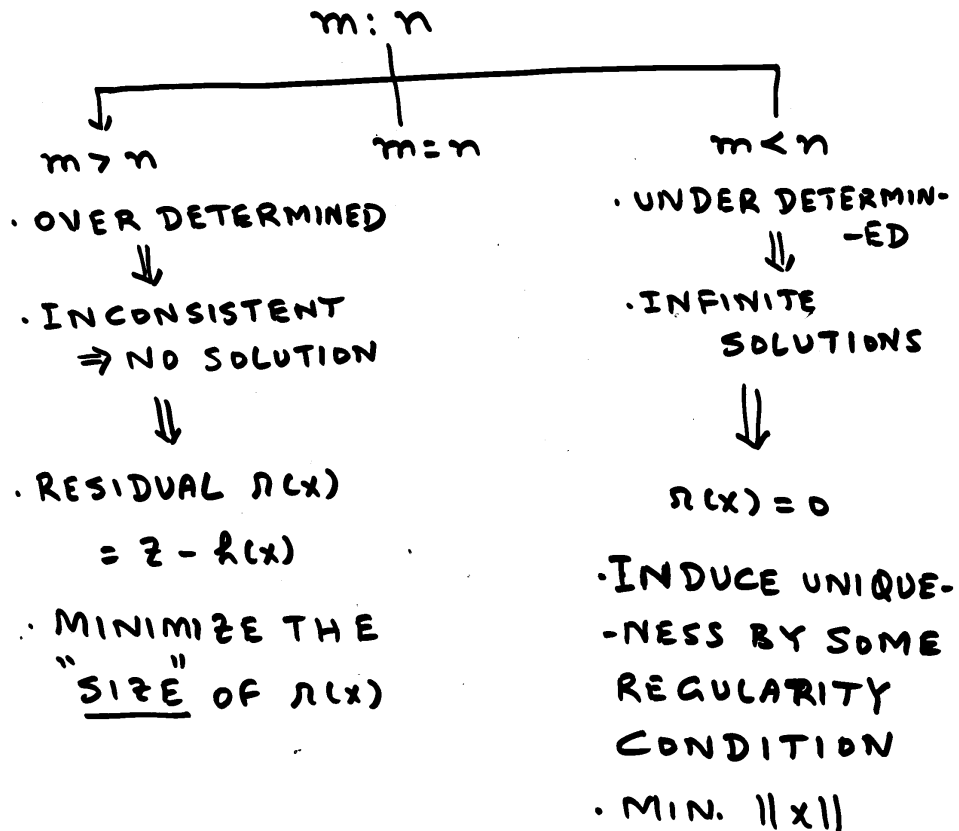 m : n
m > n
m = n
m < n
· OVER DETERMINED
⇓
· INCONSISTENT
⇒ NO SOLUTION
⇓
· RESIDUAL r(x)
= z - h(x)
· MINIMIZE THE
"SIZE" OF r(x)
· UNDER DETERMIN-
-ED
⇓
· INFINITE
SOLUTIONS
⇓
r(x) = 0
· INDUCE UNIQUE-
-NESS BY SOME
REGULARITY
CONDITION
· MIN. ||x||